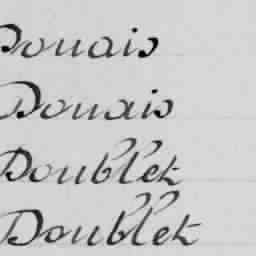 Douais
Douais
Doublet
Doublet